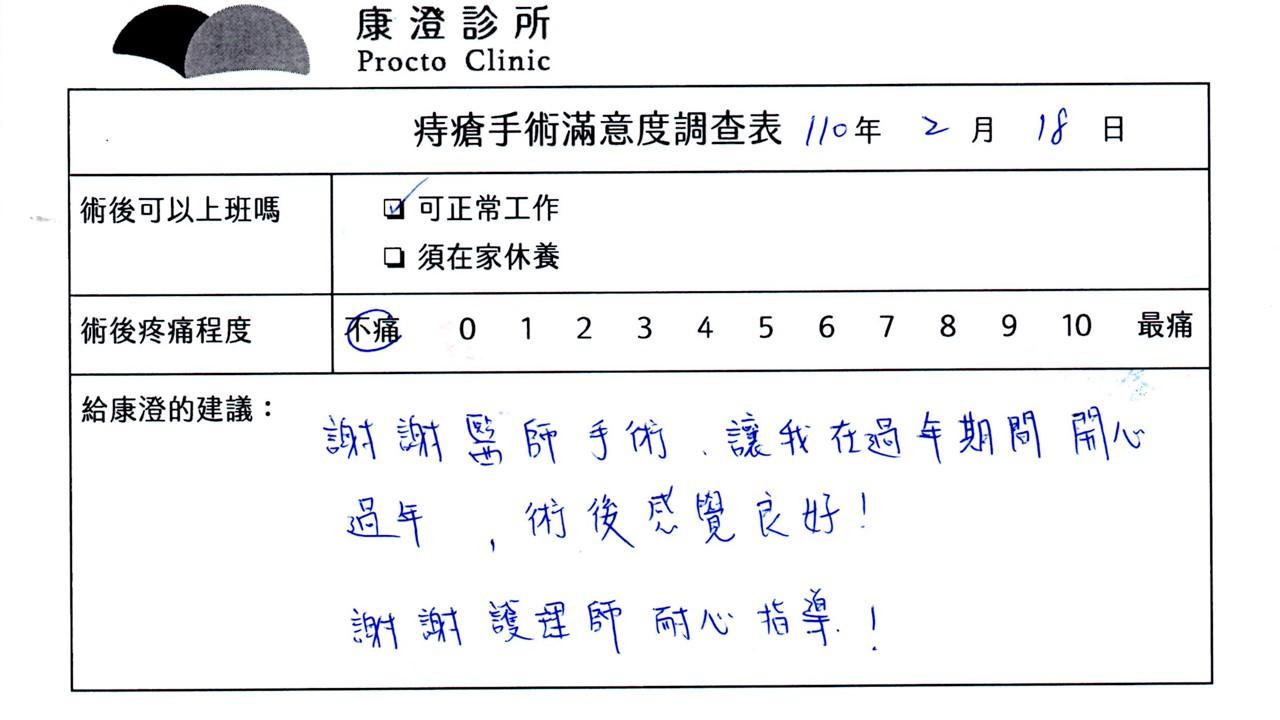 康澄診所
Procto Clinic
痔瘡手術滿意度調查表 110年 2月 18日
術後可以上班嗎
可正常工作
須在家休養
術後疼痛程度
不痛 0 1 2 3 4 5 6 7 8 9 10 最痛
給康澄的建議：
謝謝醫師手術、讓我在過年期間開心
過年，術後感覺良好！
謝謝護理師耐心指導！